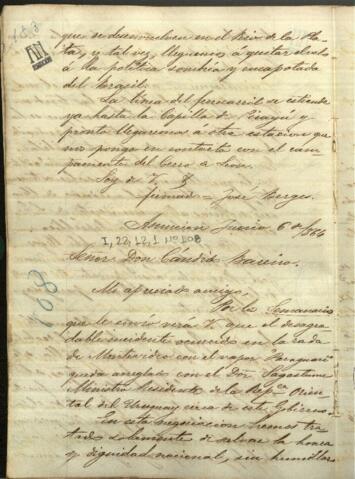 que se desenvuelven en el Rio de la Pla-
ta, y tal vez, lleguemos á quitar el velo
á la politica sombria y encapotada
del Brasil.
La linea del ferrocarril se estiende
ya hasta la Capilla de Pirayú y
pronto llegaremos a otra estacion que
nos ponga en contacto con el cam-
pamento del Cerro a Leon.
Soy de V. &
firmado = José Berges.
Asuncion Junio 6 de 1864
I, 22, 12, 1 Nº 108
Señor Don Cándido Bareiro.
Mi apreciado amigo,
Por los Semanarios
que le envio verá V. que el desagra-
dable incidente ocurrido en la rada
de Montevideo con el vapor Paraguarí
queda arreglado con el Dor Sagastume
Ministro Residente de la Repca Orien-
tal del Uruguay cerca de este Gobierno.
En esta negociacion hemos tra-
tado solamente de salvar la honra
y dignidad nacional, sin humillar